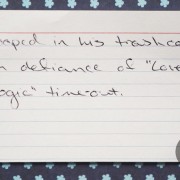 mped in his trashca
n defiance of "Love
ogic" time-out.